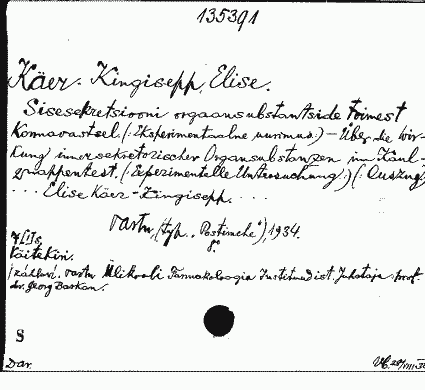 135391
Käer-Kingisepp, Elise.
Sisesekretsiooni orgaansubstantside toimest
konnavastsel. (: Eksperimentaalne uurimus:) – Über die Wir-
kung innersekretorischer Organsubstanzen im Kaul-
quappentest. (: Experimentelle Untersuchung:) (: Auszug
... Elise Käer-Kingisepp. ...
Tartu, (trk. „Postimehe"), 1934.
8°.
Käsikiri.
Tartu Ülikooli Farmakoloogia Instituudist. Juhataja: prof.
dr. Georg Barkan.
S
Dar.